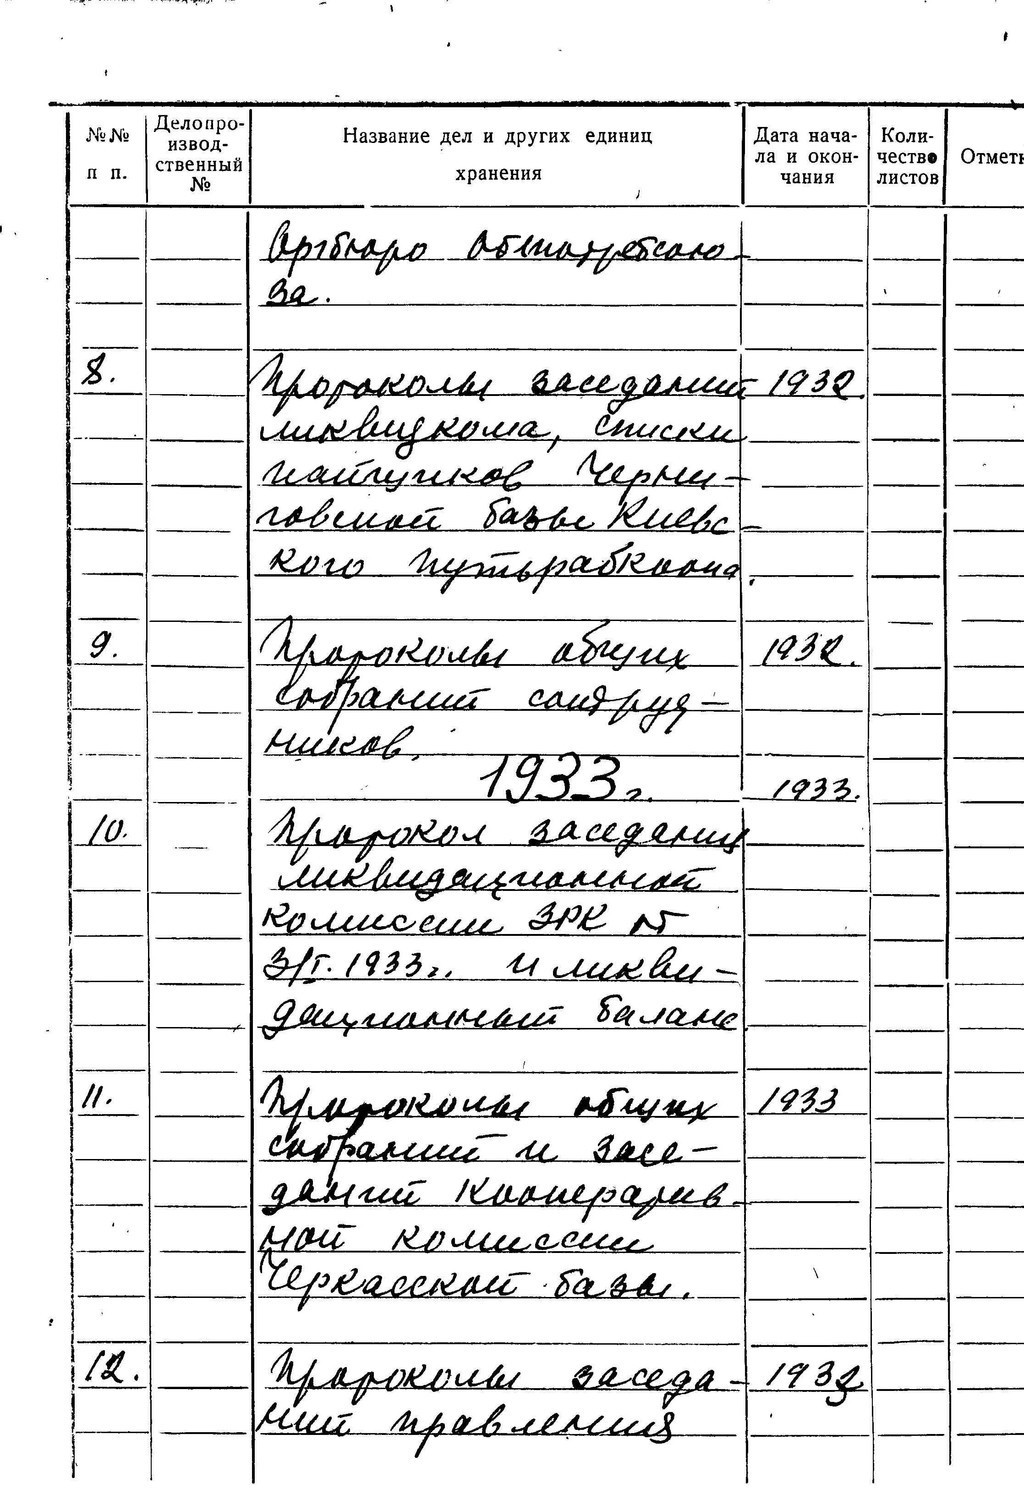 №№ п п. Делопроизвод-ственный № Название дел и других единиц хранения Дата нача-ла и окон-чания Коли-чество листов Отметк
Оргбюро Облпотребсою-
за.
8. Протоколы заседаний 1932.
ликвидкома, списки
пайщиков Черни-
говской базы Киевс-
кого Путьрабкоопа.
9. Протоколы общих 1932.
собраний сотруд-
ников.
1933г. 1933.
10. — Протокол заседания
ликвидационной
комиссии ЗРК от
3/I. 1933г. и ликви-
дационный баланс
11. Протоколы общих 1933
собраний и засе-
даний Кооператив-
ной комиссии
Черкасской базы.
12. Протоколы заседа- 1933
ний правления